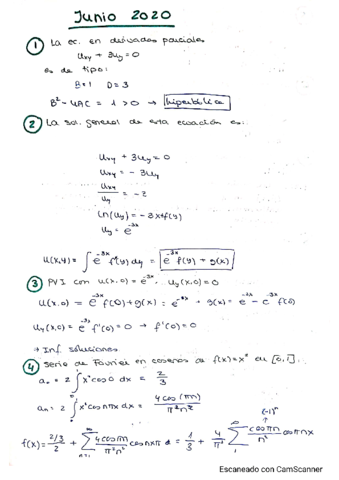 Junio 2020
① La ec. en derivadas parciales
Uxy + 3uy = 0
es de tipo:
B=1 D=3
B² - 4AC = 1 > 0 → hiperbólica
② La sol. general de esta ecuación es:
Uxy + 3uy = 0
Uxy = - 3uy
Uxy/Uy = -3
ln(Uy) = -3x+f(y)
Uy = e^-3x
U(x,y) = ∫ e^-3x f'(y) dy = e^-3x f(y) + g(x)
③ PVI con u(x,0) = e^-3x, uy(x,0)=0
U(x,0) = e^-3x f(0) + g(x) = e^-3x → g(x) = e^-3x - e^-3x f(0)
Uy(x,0) = e^-3x f'(0) = 0 → f'(0) = 0
→ Inf. soluciones
④ Serie de Fourier en cosenos de f(x) = x² en [0,1].
a₀ = 2 ∫ x² cos 0 dx = 2/3
an = 2 ∫ x² cos nπx dx = 4 cos(πn)/π²n²
(-1)^n
f(x) = 2/3/2 + Σ 4 cos πn/π²n² cos nxπ = 1/3 + 4/π² Σ cos πn/n² cos πnx
Escaneado con CamScanner